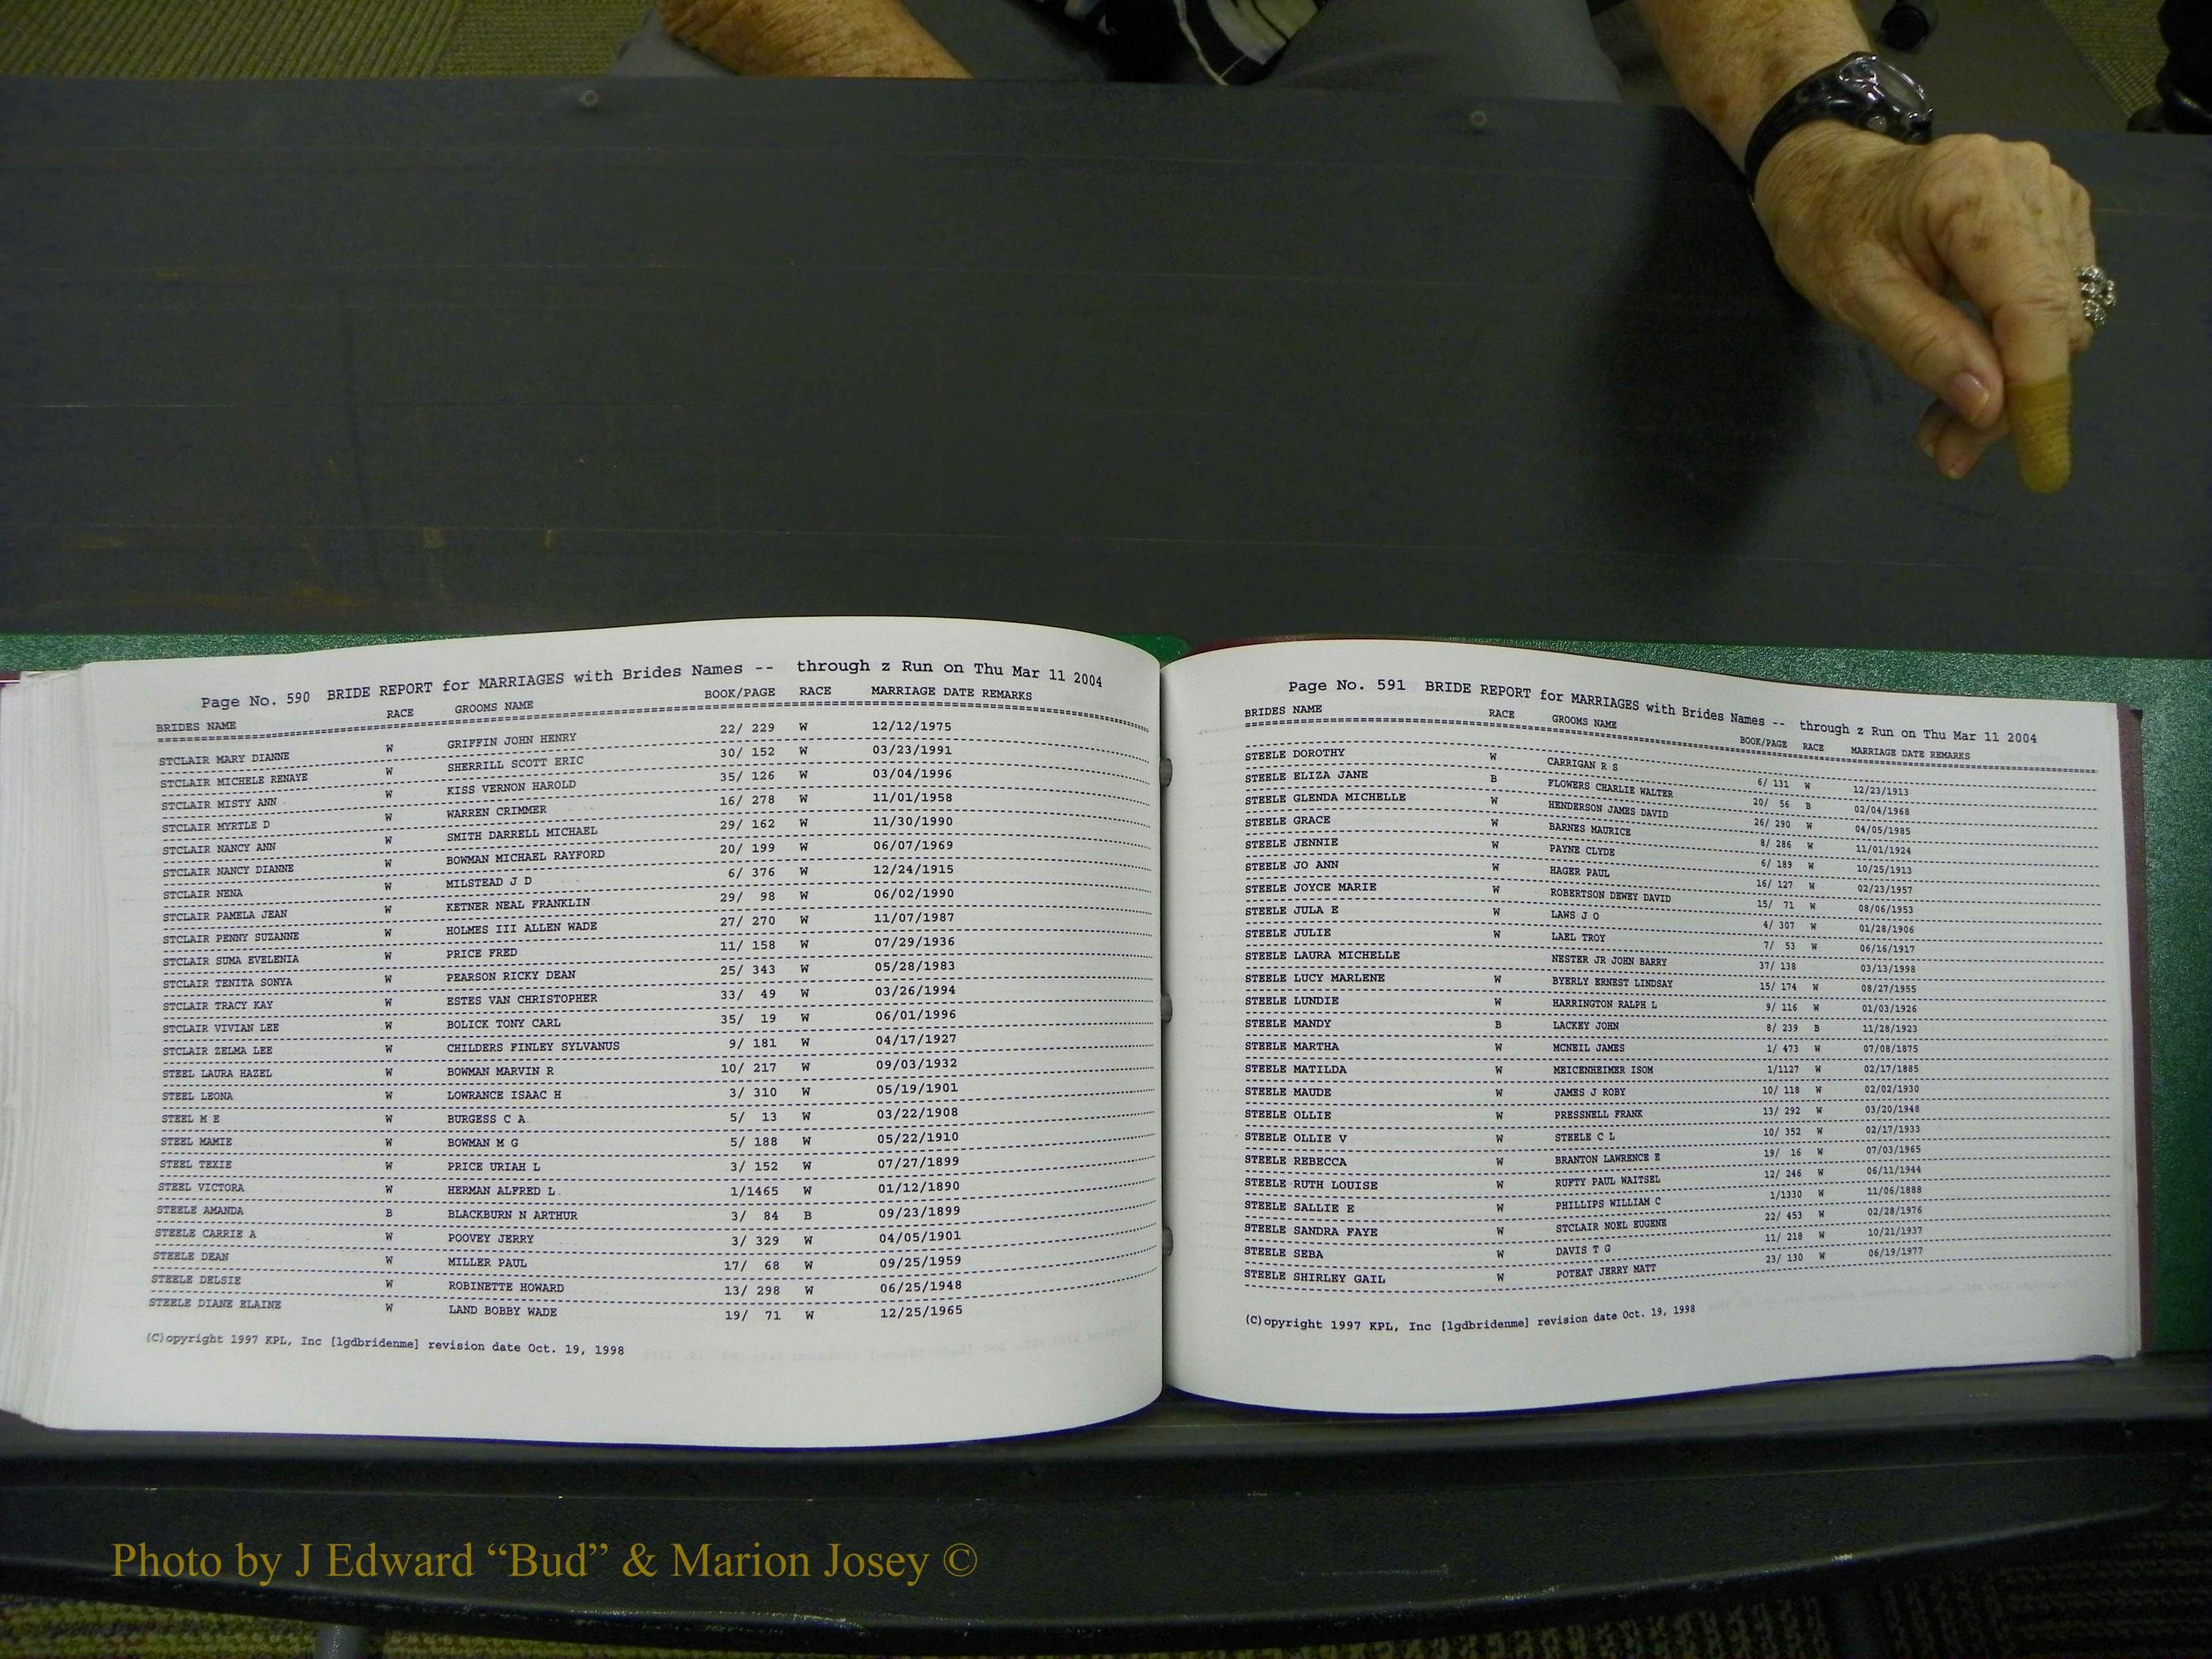 Page No. 590 BRIDE REPORT for MARRIAGES with Brides Names -- through z Run on Thu Mar 11 2004
BRIDES NAME RACE GROOMS NAME BOOK/PAGE RACE MARRIAGE DATE REMARKS
STCLAIR MARY DIANNE W GRIFFIN JOHN HENRY 22/ 229 W 12/12/1975
STCLAIR MICHELE RENAYE W SHERRILL SCOTT ERIC 30/ 152 W 03/23/1991
STCLAIR MISTY ANN W KISS VERNON HAROLD 35/ 126 W 03/04/1996
STCLAIR MYRTLE D W WARREN CRIMMER 16/ 278 W 11/01/1958
STCLAIR NANCY ANN W SMITH DARRELL MICHAEL 29/ 162 W 11/30/1990
STCLAIR NANCY DIANNE W BOWMAN MICHAEL RAYFORD 20/ 199 W 06/07/1969
STCLAIR NENA W MILSTEAD J D 6/ 376 W 12/24/1915
STCLAIR PAMELA JEAN W KETNER NEAL FRANKLIN 29/ 98 W 06/02/1990
STCLAIR PENNY SUZANNE W HOLMES III ALLEN WADE 27/ 270 W 11/07/1987
STCLAIR SUMA EVELENIA W PRICE FRED 11/ 158 W 07/29/1936
STCLAIR TENITA SONYA W PEARSON RICKY DEAN 25/ 343 W 05/28/1983
STCLAIR TRACY KAY W ESTES VAN CHRISTOPHER 33/ 49 W 03/26/1994
STCLAIR VIVIAN LEE W BOLICK TONY CARL 35/ 19 W 06/01/1996
STCLAIR ZELMA LEE W CHILDERS FINLEY SYLVANUS 9/ 181 W 04/17/1927
STEEL LAURA HAZEL W BOWMAN MARVIN R 10/ 217 W 09/03/1932
STEEL LEONA W LOWRANCE ISAAC H 3/ 310 W 05/19/1901
STEEL M E W BURGESS C A 5/ 13 W 03/22/1908
STEEL MAMIE W BOWMAN M G 5/ 188 W 05/22/1910
STEEL TEXIE W PRICE URIAH L 3/ 152 W 07/27/1899
STEEL VICTORA W HERMAN ALFRED L 1/1465 W 01/12/1890
STEELE AMANDA B BLACKBURN N ARTHUR 3/ 84 B 09/23/1899
STEELE CARRIE A W POOVEY JERRY 3/ 329 W 04/05/1901
STEELE DEAN W MILLER PAUL 17/ 68 W 09/25/1959
STEELE DELSIE W ROBINETTE HOWARD 13/ 298 W 06/25/1948
STEELE DIANE ELAINE W LAND BOBBY WADE 19/ 71 W 12/25/1965
(C)opyright 1997 KPL, Inc [lgdbridenme] revision date Oct. 19, 1998
Page No. 591 BRIDE REPORT for MARRIAGES with Brides Names -- through z Run on Thu Mar 11 2004
BRIDES NAME RACE GROOMS NAME BOOK/PAGE RACE MARRIAGE DATE REMARKS
STEELE DOROTHY W CARRIGAN R S 6/ 131 W 12/23/1913
STEELE ELIZA JANE B FLOWERS CHARLIE WALTER 20/ 56 B 02/04/1968
STEELE GLENDA MICHELLE W HENDERSON JAMES DAVID 26/ 290 W 04/05/1985
STEELE GRACE W BARNES MAURICE 8/ 286 W 11/01/1924
STEELE JENNIE W PAYNE CLYDE 6/ 189 W 10/25/1913
STEELE JO ANN W HAGER PAUL 16/ 127 W 02/23/1957
STEELE JOYCE MARIE W ROBERTSON DEWEY DAVID 15/ 71 W 08/06/1953
STEELE JULA E W LAWS J O 4/ 307 W 01/28/1906
STEELE JULIE W LAEL TROY 7/ 53 W 06/16/1917
STEELE LAURA MICHELLE NESTER JR JOHN BARRY 37/ 138 03/13/1998
STEELE LUCY MARLENE W BYERLY ERNEST LINDSAY 15/ 174 W 08/27/1955
STEELE LUNDIE W HARRINGTON RALPH L 9/ 116 W 01/03/1926
STEELE MANDY B LACKEY JOHN 8/ 239 B 11/28/1923
STEELE MARTHA W MCNEIL JAMES 1/ 473 W 07/08/1875
STEELE MATILDA W MEICENHEIMER ISOM 1/1127 W 02/17/1885
STEELE MAUDE W JAMES J ROBY 10/ 118 W 02/02/1930
STEELE OLLIE W PRESSNELL FRANK 13/ 292 W 03/20/1948
STEELE OLLIE V W STEELE C L 10/ 352 W 02/17/1933
STEELE REBECCA W BRANTON LAWRENCE E 19/ 16 W 07/03/1965
STEELE RUTH LOUISE W RUFTY PAUL WAITSEL 12/ 246 W 06/11/1944
STEELE SALLIE E W PHILLIPS WILLIAM C 1/1330 W 11/06/1888
STEELE SANDRA FAYE W STCLAIR NOEL EUGENE 22/ 453 W 02/28/1976
STEELE SEBA W DAVIS T G 11/ 218 W 10/21/1937
STEELE SHIRLEY GAIL W POTEAT JERRY MATT 23/ 130 W 06/19/1977
(C)opyright 1997 KPL, Inc [lgdbridenme] revision date Oct. 19, 1998
Photo by J Edward “Bud” & Marion Josey ©